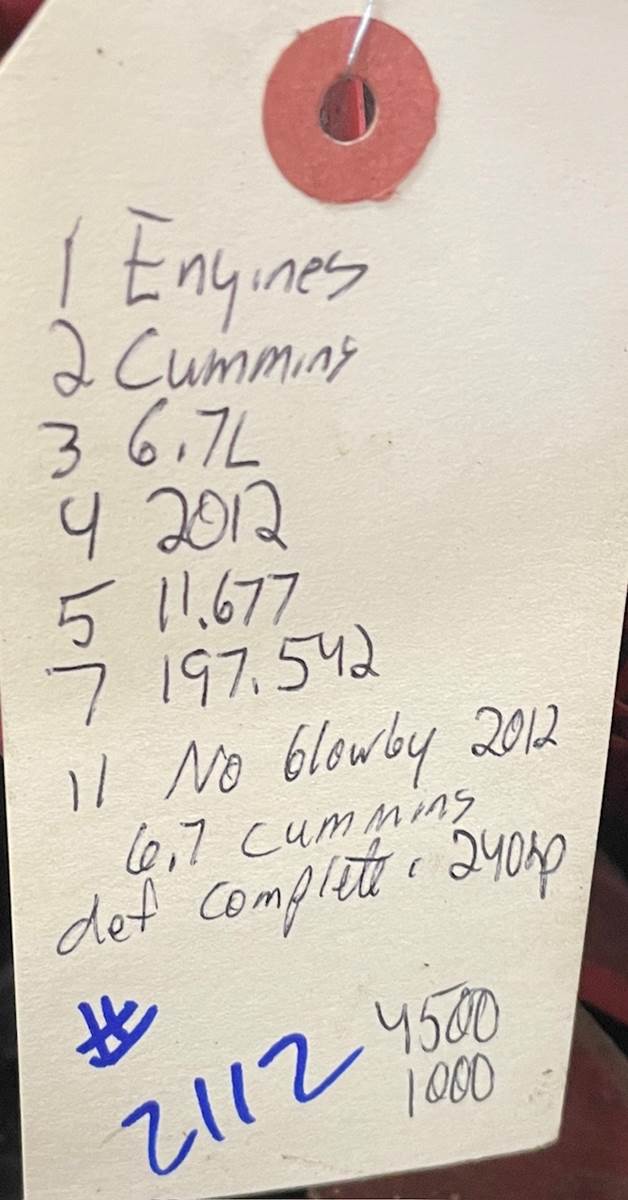 1 Engines
2 Cummins
3 6.7L
4 2012
5 11.677
7 197.542
11 No blowby 2012
6.7 cummins
def complete. 240hp
#
2112
4500
1000